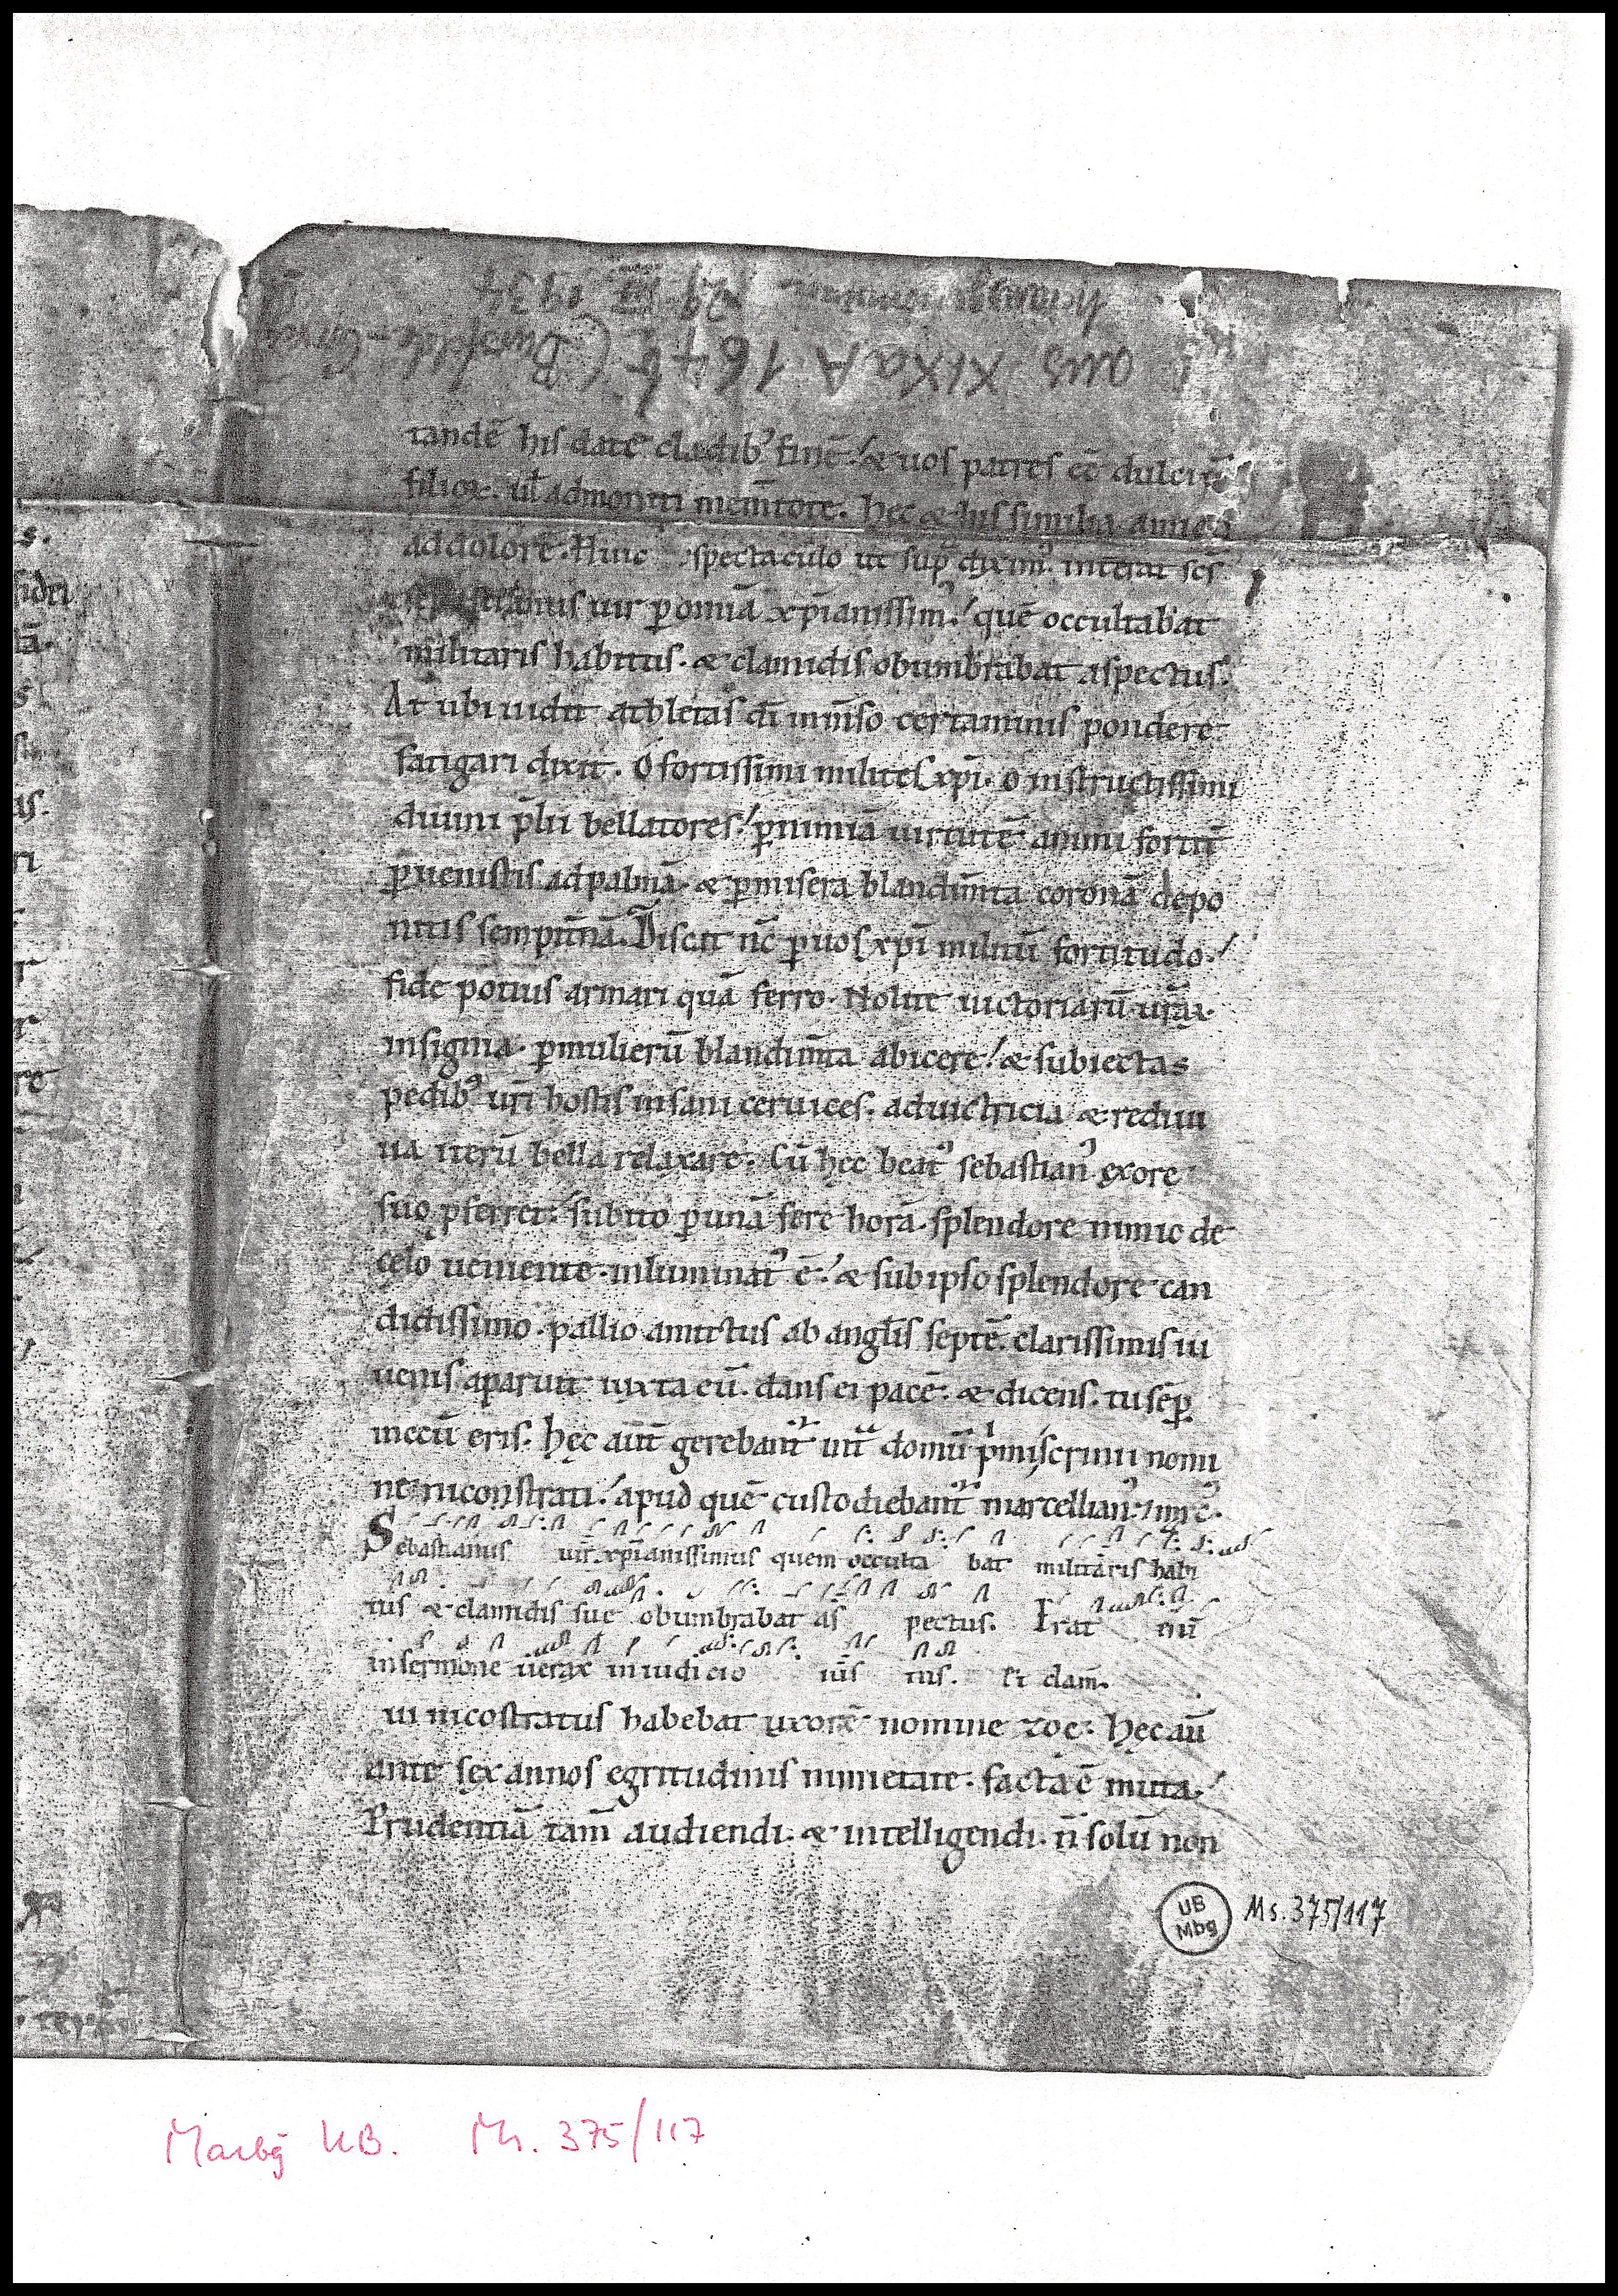 aus XIXaA 1646 (Bursfelde-
29. III 1934
tandē his date cladib⁹ finē. & uos patres eē dulciū
filioꝝ. ul admoniti mem̄tote. hec & his similia
ad dolorē. Huic spectaculo ut sup̄ diximꝰ. interat scs̄
uir ꝑ omīa xp̄ianissimꝰ. quē occultabat
militaris habitus. & clamidis obumbrabat aspectus.
At ubi uidit athletas dī inm̄so certaminis pondere
fatigari dixit. O fortissimi milites xp̄i. o instructissimi
diuini p̄lii bellatores. ꝑ nimiā uirtutē animi fortit̄
ꝑuenistis ad palmā. & ꝑ misera blandim̄ta coronā depo
nitis sempit̄nā. Discat nc̄ ꝑ uos xp̄i militū fortitudo.
fide potius armari quā ferro. Nolite uictoriarū ur̄aꝝ
insignia. ꝑ mulierū blandim̄ta abicere. & subiectas
pedibꝰ ur̄i hostis insani ceruices. ad uictricia & rediui
ua iterū bella relaxare. Cū hec beatꝰ sebastianꝰ ex ore
suo p̄ferret. subito ꝑ unā fere horā. splendore nimio de
celo ueniente. inluminatꝰ ē. & sub ipso splendore can
didissimo. pallio amictus ab angl̄is septē. clarissimis iu
uenis aparuit iuxta eū. dans ei pacē. & dicens. tu semꝑ
mecū eris. Hęc aūt gerebant᷑ int᷑ domū p̄miscrinii nomi
ne niconstrati. apud quē custodiebant᷑ marcellianꝰ
Sebastianus uir xp̄ianissimus quem occulta bat militaris habi
tus & clamidis sue obumbrabat as pectus. Erat eni
in sermone uerax in iudicio ius tus. Et clam̄.
ui nicostratus habebat uxorē nomine zoe. Hęc aū
ante sex annos egritudinis nimietate. facta ē muta.
Prudentiā tam̄ audiendi. & intelligendi. n̄ solū non
UB
Mbg
Ms. 375/117
Marbg UB. Ms. 375/117